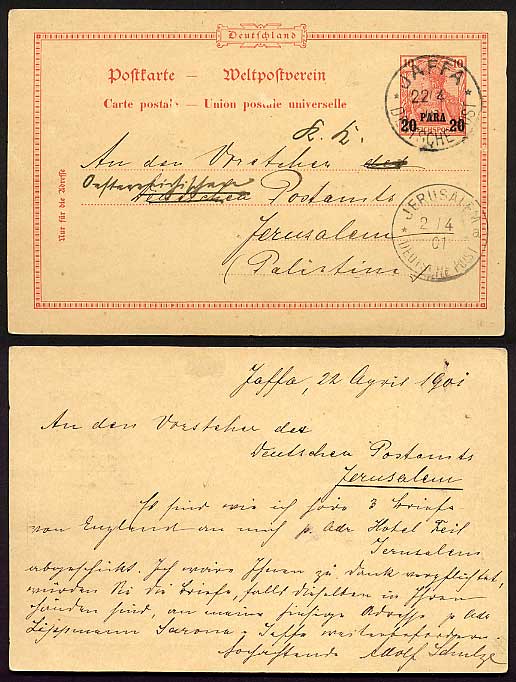 Deutschland
Postkarte — Weltpostverein
Carte postale — Union postale universelle
10 10
20 PARA 20
REICHSPOST
JAFFA
22/4
DEUTSCHE POST
K. K.
An den Vorsteher des
Oesterreichischen
Deutschen Postamts
Jerusalem
(Palistina
Nur für die Adresse
JERUSALEM
a
2/4
01
DEUTSCHE POST
Jaffa, 22 April 1901
An den Vorsteher des
Deutschen Postamts
Jerusalem
Es sind wie ich höre 3 Briefe
von England an mich p. Adr Hotel Feil
Jerusalem
abgeschickt. Ich wäre Ihnen zu Dank verpflichtet,
würden Sie die Briefe, falls dieselben in Ihren
Händen sind, an meine hiesige Adresse p Adr
Lippmann Sarona - Jaffa weiterbefördern.
Hochachtend Adolf Schulze